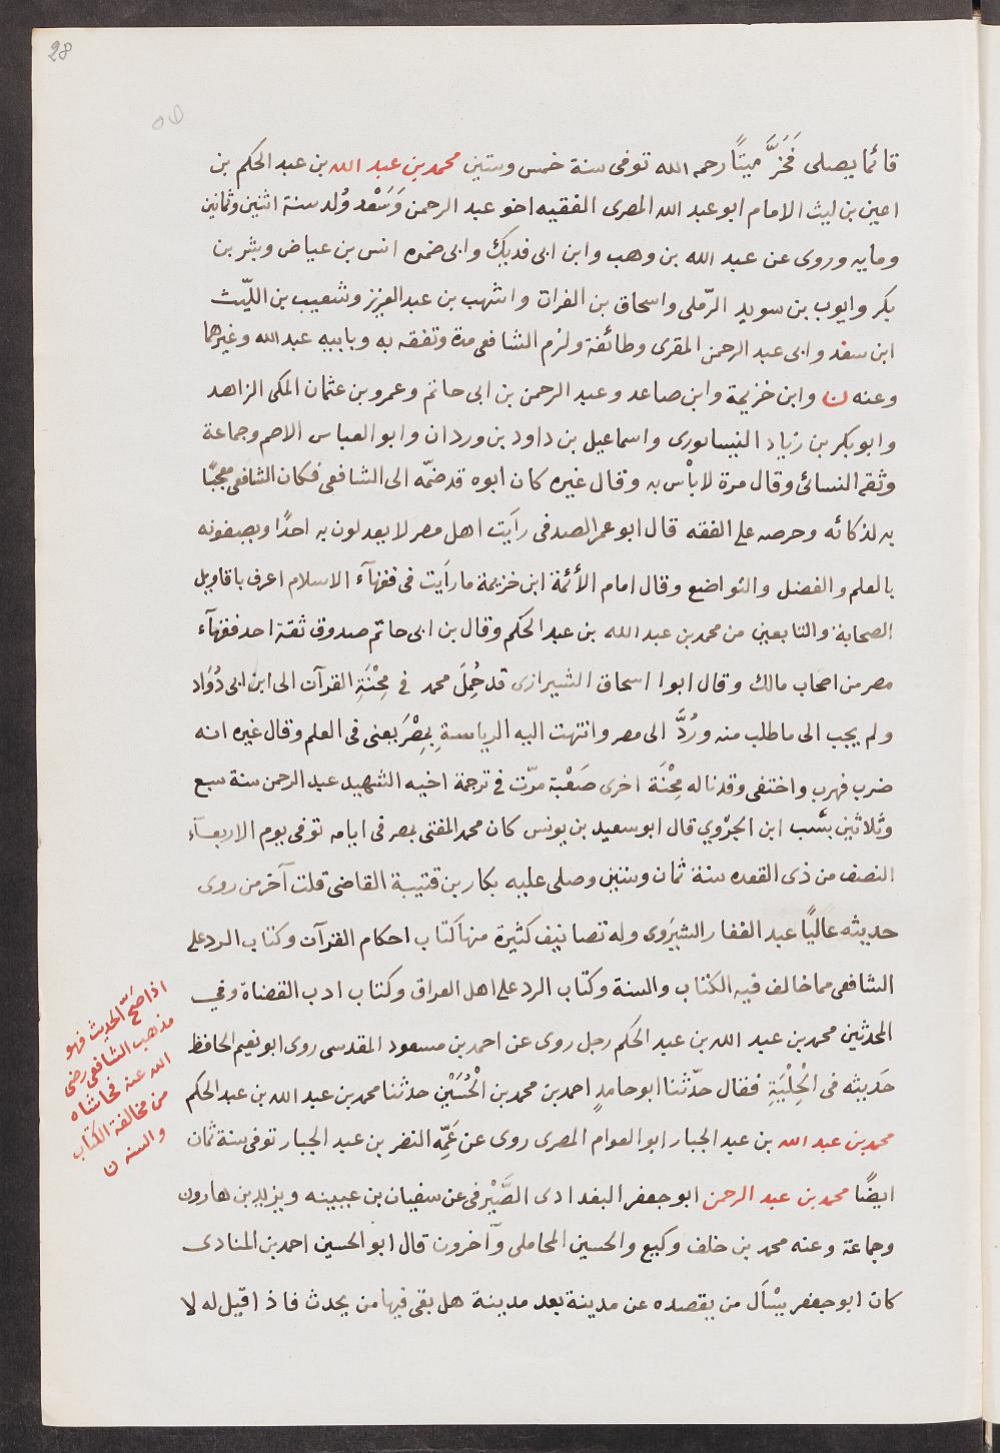 28
قائما يصلى فَخَرَّ ميتًا رحمه الله توفى سنة خمس وستين محمد بن عبد الله بن عبد الحكم بن
اعين بن ليث الامام ابو عبد الله المصرى الفقيه اخو عبد الرحمن وَسَعْد وُلد سنة اثنين وثمانين
ومايه وروى عن عبد الله بن وهب وابن ابى فديك وابى ضمره انس بن عياض وبشر بن
بكر وايوب بن سويد الرّملى واسحاق بن الفرات واشهب بن عبد العزيز وشعيب بن اللّيث
ابن سعد وابى عبد الرحمن المقرى وطائفة ولزم الشافعى مدة وتفقه به وبابيه عبد الله وغيرهما
وعنه ن وابن خزيمة وابن صاعد وعبد الرحمن بن ابى حاتم وعمرو بن عثمان المكى الزاهد
وابو بكر بن زياد النيسابورى واسماعيل بن داود بن وردان وابو العباس الاصم وجماعة
وثقه النسائى وقال مرة لا بأس به وقال غيره كان ابوه قد ضمّه الى الشافعى فكان الشافعى معجبًا
به لذكائه وحرصه على الفقه قال ابو عمر الصدفى رأيت اهل مصر لا يعدلون به احدًا ويصفونه
بالعلم والفضل والتواضع وقال امام الأئمة ابن خزيمة ما رأيت فى فقهآء الاسلام اعرف باقاويل
الصحابة والتابعين من محمد بن عبد الله بن عبد الحكم وقال بن ابى حاتم صدوق ثقة احد فقهآء
مصر من اصحاب مالك وقال ابوا اسحاق الشيرازى قد حُمِلَ محمد فى مِحْنَةِ القرآن الى ابن ابى دُوَاد
ولم يجب الى ما طلب منه ورُدَّ الى مصر وانتهت اليه الرياسة بِمِصْرَ يعنى فى العلم وقال غيره انه
ضرب فهرب واختفى وقد ناله مِحْنَة اخرى صَعْبَة مرّت فى ترجمة اخيه الشهيد عبد الرحمن سنة سبع
وثلاثين بسبب ابن الجَرْوِي قال ابو سعيد بن يونس كان محمد المفتى بمصر فى ايامه توفى يوم الاربعآء
النصف من ذى القعده سنة ثمان وستين وصلى عليه بكار بن قتيبة القاضى قلت آخر من روى
حديثه عاليًا عبد الغفار الشيرَوى وله تصانيف كثيرة منها كتاب احكام القرآن وكتاب الرد على
الشافعى مما خالف فيه الكتاب والسنة وكتاب الرد على اهل العراق وكتاب ادب القضاة وفي
المحدثين محمد بن عبد الله بن عبد الحكم رجل روى عن احمد بن مسعود المقدسى روى ابو نعيم الحافظ
حَديثه فى الحِلْيَةِ فقال حدّثنا ابو حامدٍ احمد بن محمد بن الْحُسَيْنِ حدثنا محمد بن عبد الله بن عبد الحكم
محمد بن عبد الله بن عبد الجبار ابو العوام المصرى روى عن عَمِّه النضر بن عبد الجبار توفى سنة ثمان
ايضًا محمد بن عبد الرحمن ابو جعفر البغدادى الصَّيْرفى عن سفيان بن عيينه ويزيد بن هارون
وجماعة وعنه محمد بن خلف وكيع والحسين المحاملى وآخرون قال ابو الحسين احمد بن المنادى
كان ابو جعفر يسْأَل من يقصده عن مدينة بعد مدينة هل بقى فيها من يحدث فاذا قيل له لا
اذا صَحّ الحديث فهو
مذهب الشافعى رضى
الله عنه فحاشاه
من مخالفة الكتاب
والسنه ن